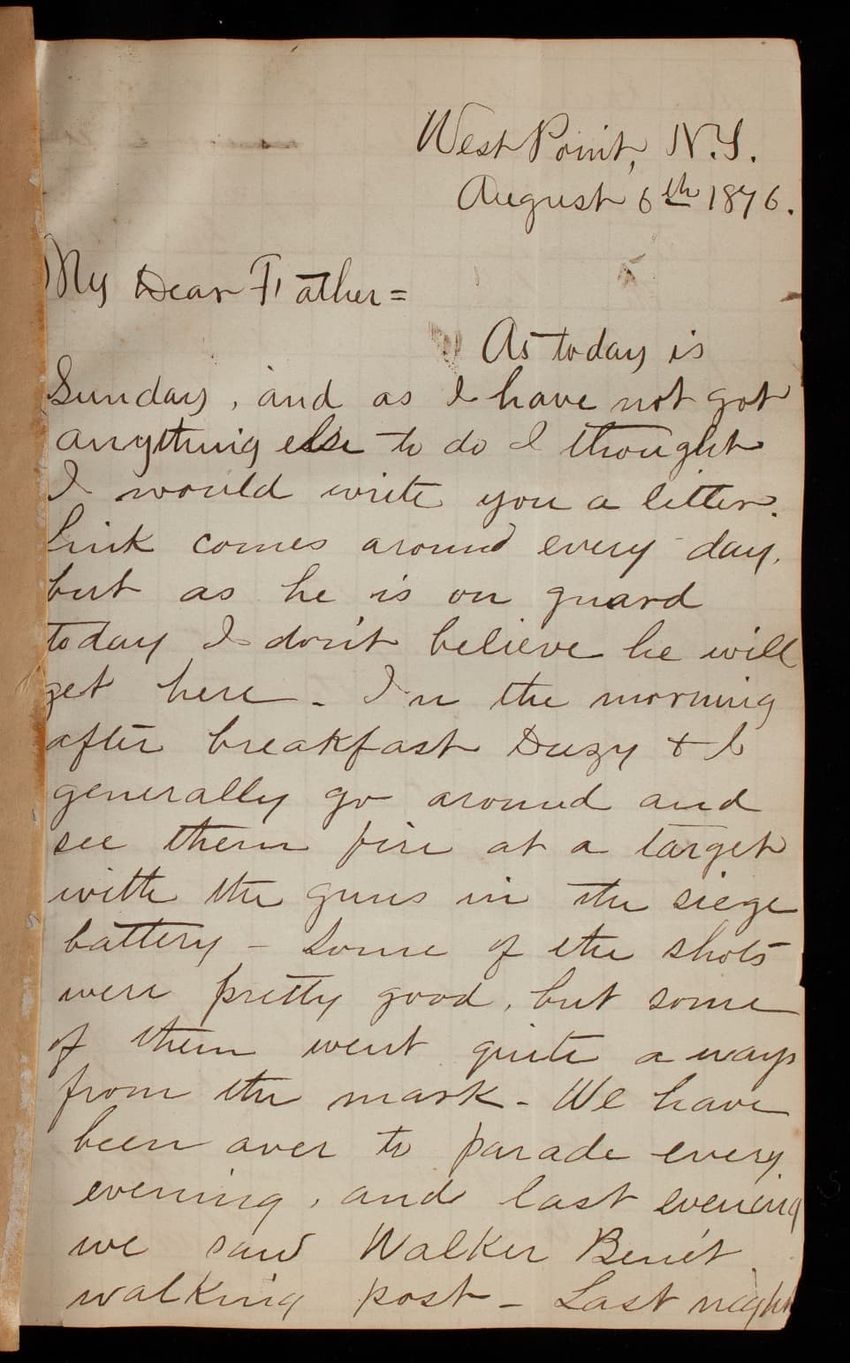 West Point, N.Y.
August 6th 1876.
My Dear Father=
As today is
Sunday, and as I have not got
anything else to do I thought
I would write you a letter.
Link comes around every day,
but as he is on guard
today I don't believe he will
get here - In the morning
after breakfast Duzy & I
generally go around and
see them fire at a target
with the guns in the siege
battery - Some of the shots
were pretty good, but some
of them went quite a ways
from the mark - We have
been over to parade every
evening, and last evening
we saw Walker Benét
walking post - Last night